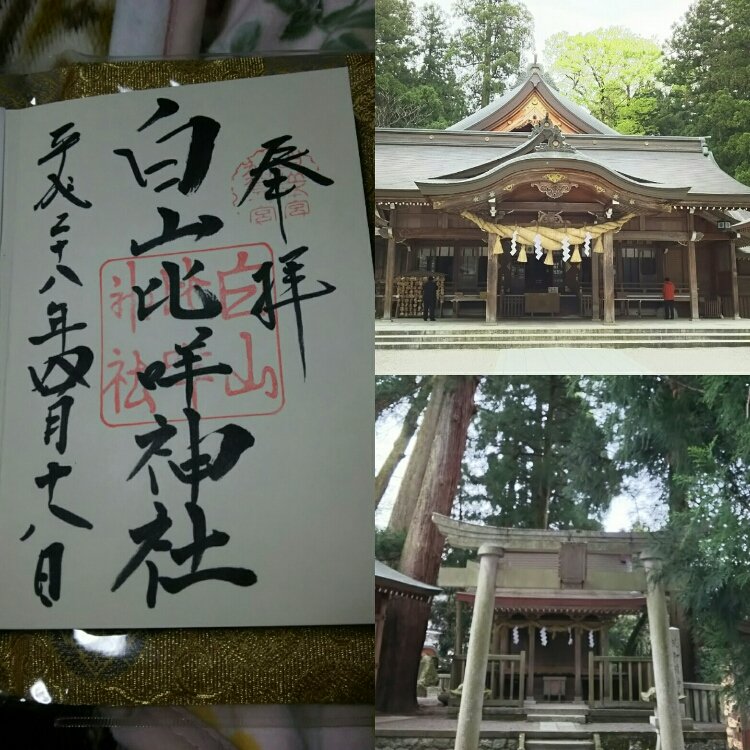 奉拝
白山比咩神社
平成二十八年四月十八日
白山
比咩
神社